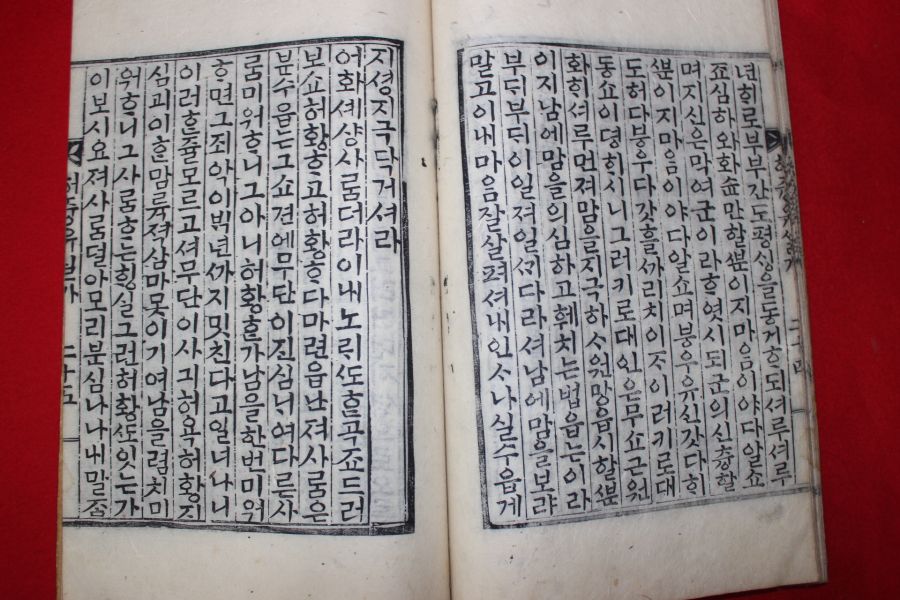 년ᄒᆡ로부부간도평ᄉᆡᆼ을동거ᄒᆞ되셔루셔루
죠심하와화슌만할ᄲᅮᆫ이지마음이야다알쇼
며지신은막여군이라ᄒᆞ엿시되군의신츙할
ᄲᅮᆫ이지마음이야다알쇼며붕우유신갓다ᄒᆡ
도허다붕우다갓흘ᄭᅡ리치이ᄌᆞ이러키로대
동쇼이뎡ᄒᆡ시니그러키로대인은무쇼근원
화ᄒᆡ셔루먼져맘을지극하ᄉᆞ원망읍시할ᄲᅮᆫ
이지남에맘을의심하고훼치는법읍는이라
부ᄃᆡ부ᄃᆡ이일져일ᄭᆡ다라셔남에맘을보랴
말고이내마음잘살펴셔내인ᄉᆞ나실수읍게
지셩지극닥거셔라
어화셰샹사ᄅᆞᆷ더라이내노ᄅᆡ ᄯᅩᄒᆞᆫ곡죠드러
보쇼허황ᄒᆞ고허황ᄒᆞ다마련읍난져사ᄅᆞᆷ은
분수읍는그쇼견에무단이진심ᄂᆡ여다른사
ᄅᆞᆷ미워ᄒᆞ니그아니허황ᄒᆞᆯ가남을한번미워
ᄒᆞ면그죄아이ᄇᆡᆨ년ᄭᅡ지밋친다고일녀나니
이러ᄒᆞᆫ줄모르고셔무단이사긔허욕허황지
심괴이ᄒᆞᆫ맘륙젹삼마못이기여남을렴치미
워ᄒᆞ니그사ᄅᆞᆷᄒᆞ는ᄒᆡᆼ실그런허황ᄯᅩ잇는가
이보시요져사ᄅᆞᆷ덜아모리분심나나내말좀